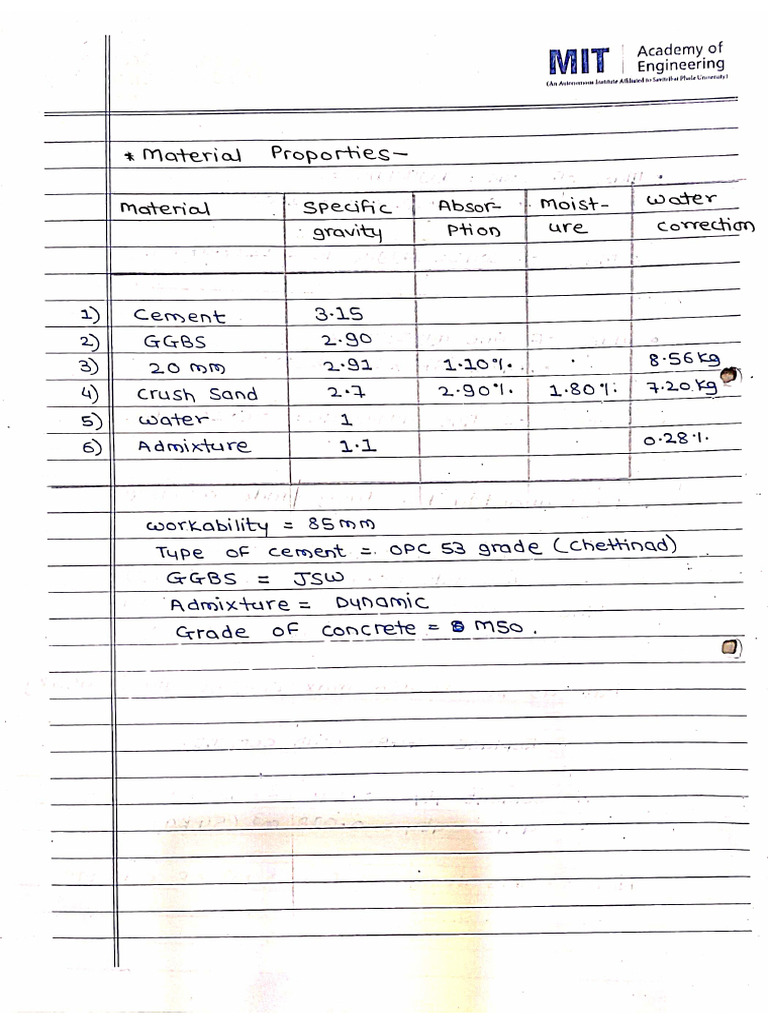 MIT Academy of Engineering
(An Autonomous Institute Affiliated to Savitribai Phule University)
* Material Proporties-
Material Specific gravity Absor-ption Moist-ure Water correction
1) Cement 3.15
2) GGBS 2.90
3) 20 mm 2.91 1.10%. 8.56 kg
4) Crush Sand 2.7 2.90%. 1.80%. 7.20 kg
5) Water 1
6) Admixture 1.1 0.28%.
Workability = 85 mm
Type of cement = OPC 53 grade (Chettinad)
GGBS = JSW
Admixture = Dynamic
Grade of concrete = M50.